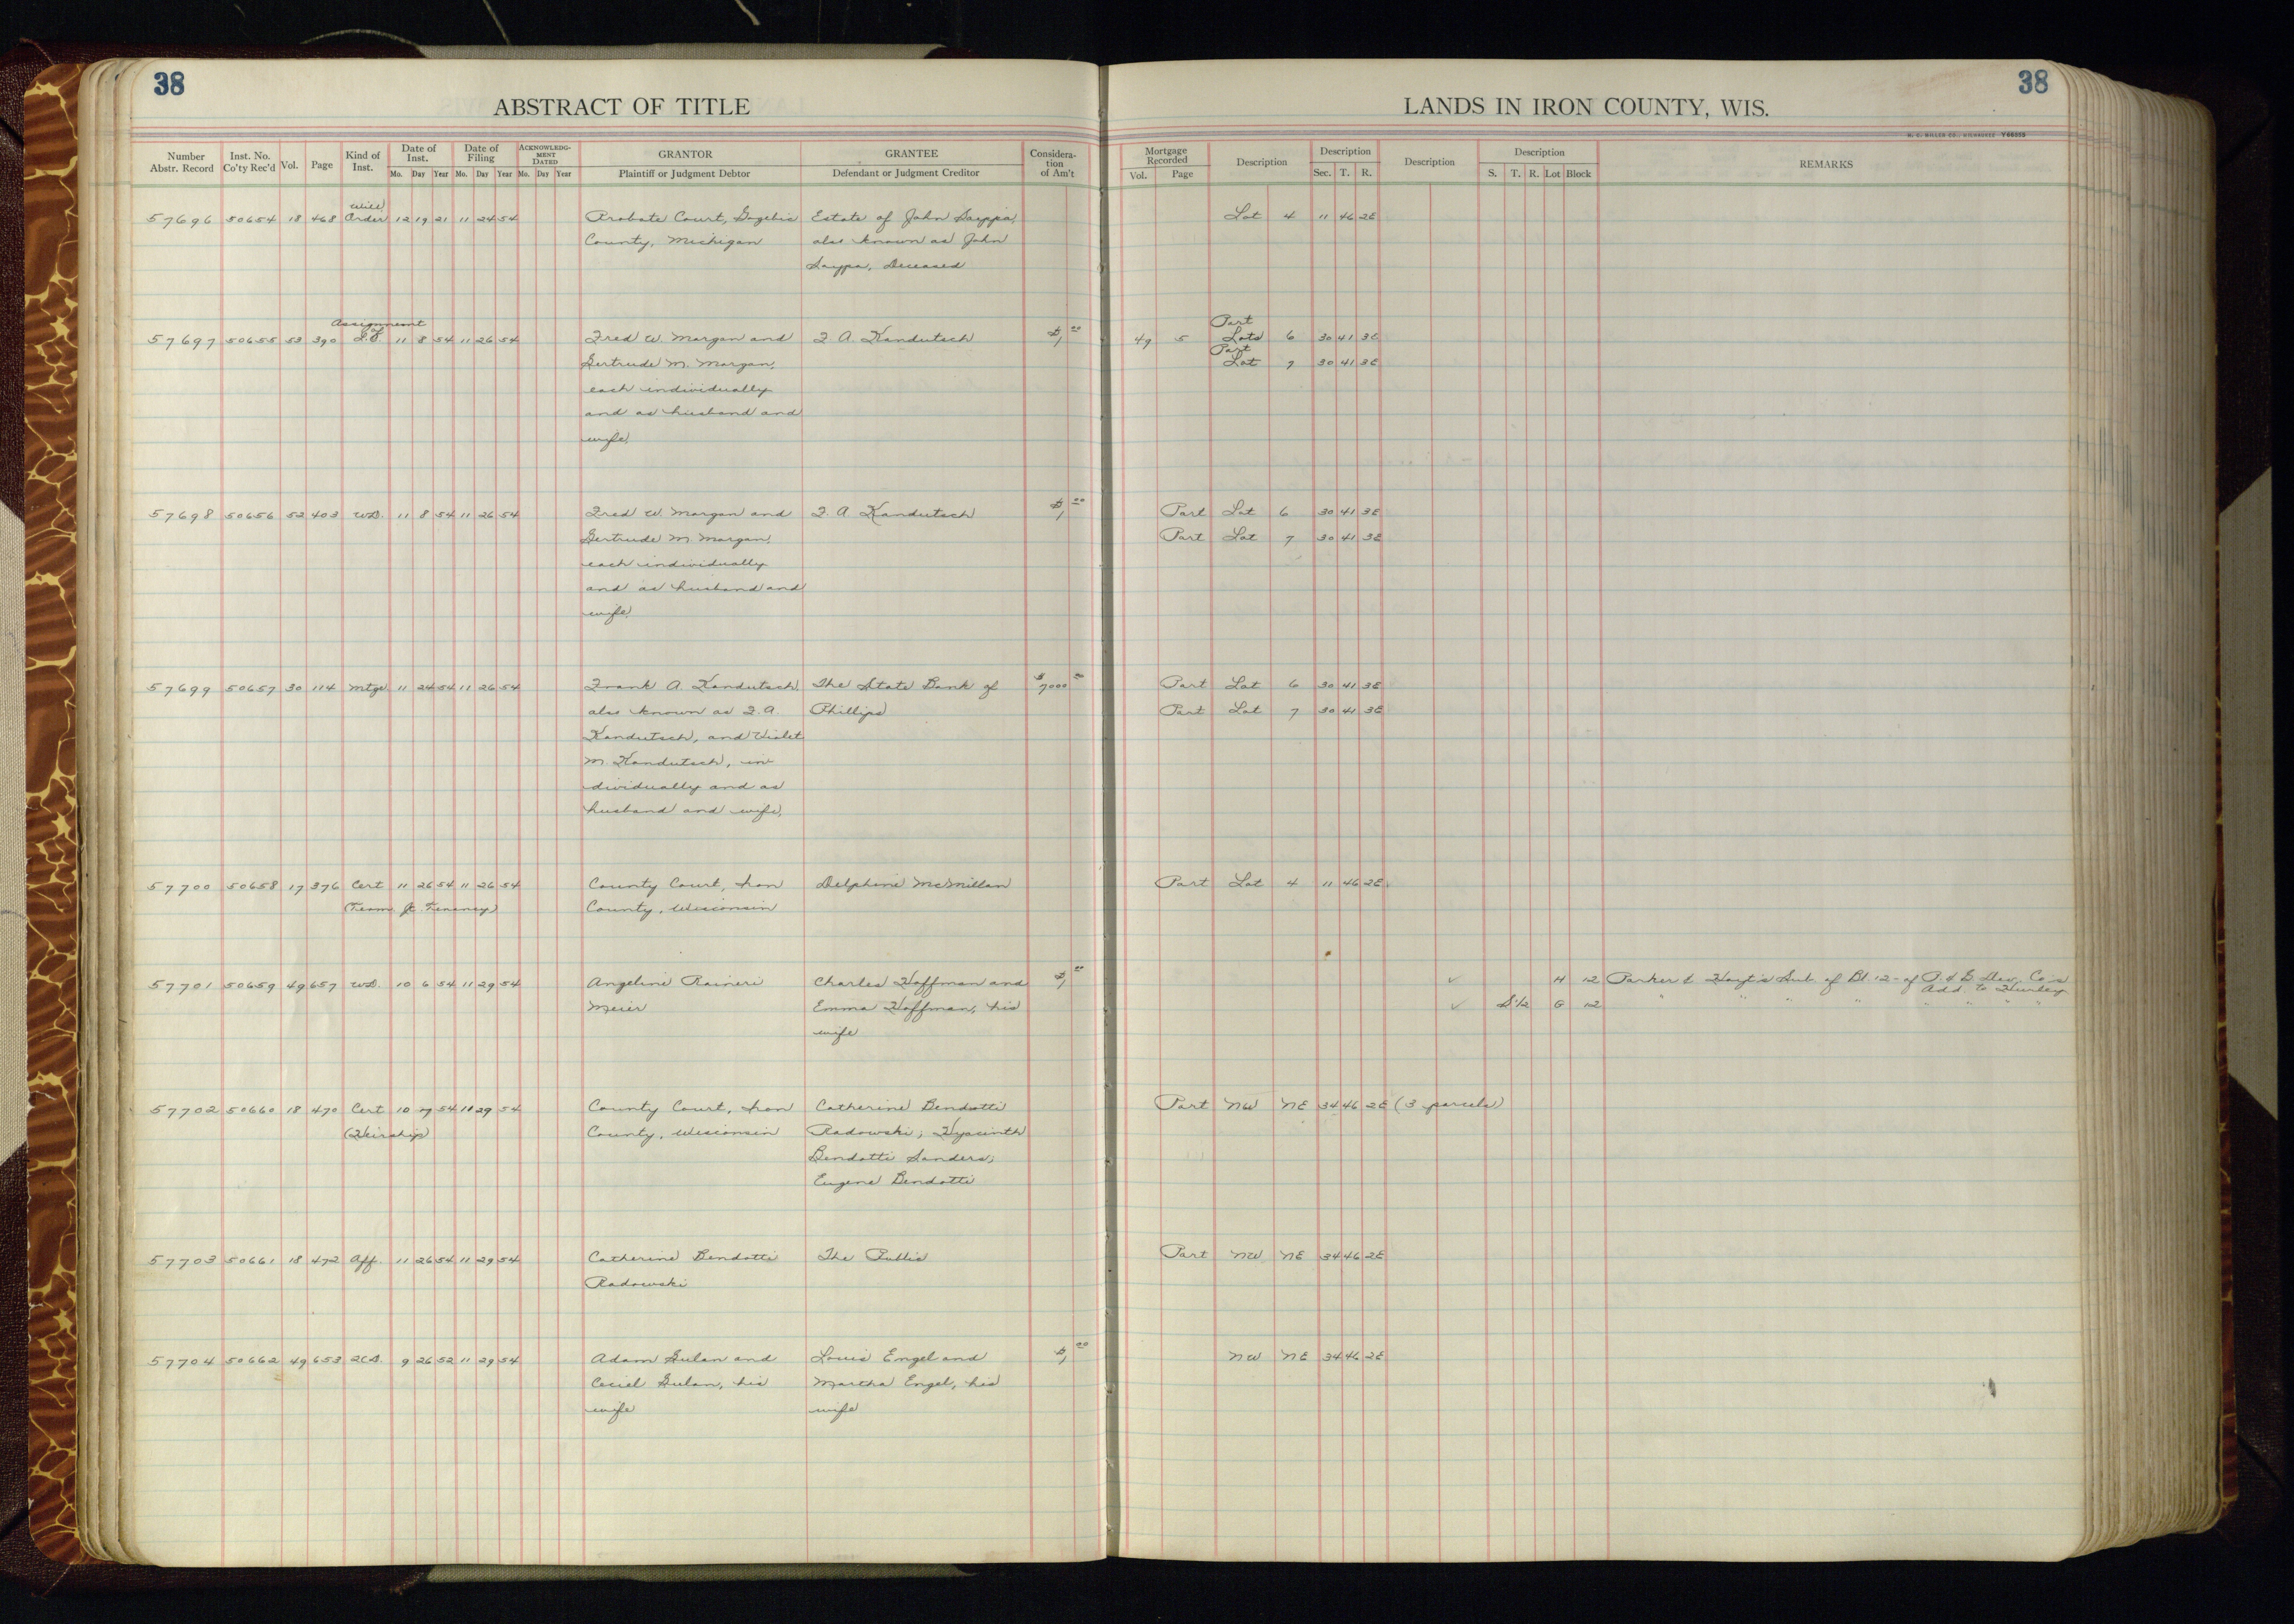 38
38
ABSTRACT OF TITLE
LANDS IN IRON COUNTY, WIS.
H. C. MILLER CO., MILWAUKEE Y66255
Number Abstr. Record
Inst. No. Co'ty Rec'd
Vol.
Page
Kind of Inst.
Date of Inst.
Mo. Day Year
Date of Filing
Mo. Day Year
ACKNOWLEDGMENT DATED
Mo. Day Year
GRANTOR
Plaintiff or Judgment Debtor
GRANTEE
Defendant or Judgment Creditor
Consideration of Am't
Mortgage Recorded
Vol. Page
Description
Description
Sec. T. R.
Description
Description
S. T. R. Lot Block
REMARKS
Will
57696 50654 18 468 Order 12 19 21 11 24 54 Probate Court, Gogebic Estate of John Sayppa, Lot 4 11 46 2E
County, Michigan also known as John
Saypa, Deceased
Assignment of Part
57697 50655 53 390 L.C. 11 8 54 11 26 54 Fred W. Morgan and F. A. Kandutsch $1 00 49 5 Lots 6 30 41 3E
Part
Gertrude M. Morgan, Lot 7 30 41 3E
each individually
and as husband and
wife,
57698 50656 52 403 W.D. 11 8 54 11 26 54 Fred W. Morgan and F. A. Kandutsch $1 00 Part Lot 6 30 41 3E
Gertrude M. Morgan, Part Lot 7 30 41 3E
each individually
and as husband and
wife,
57699 50657 30 114 Mtge 11 24 54 11 26 54 Frank A. Kandutsch, The State Bank of $7000 00 Part Lot 6 30 41 3E
also known as F. A. Phillips Part Lot 7 30 41 3E
Kandutsch, and Violet
M. Kandutsch, in
dividually and as
husband and wife,
57700 50658 17 376 Cert 11 26 54 11 26 54 County Court, Iron Delphine McMillan Part Lot 4 11 46 2E
(Term Jt. Tenancy) County, Wisconsin
57701 50659 49 657 W.D. 10 6 54 11 29 54 Angeline Raineri Charles Hoffman and $1 00 ✓ H 12 Parker & Hoyt's Sub. of Bl. 12 of Dev. Co's
Add. to Hurley
Meier Emma Hoffman, his ✓ S 1/2 G 12 " " " " " " " "
wife
57702 50660 18 470 Cert 10 27 54 11 29 54 County Court, Iron Catherine Bendotti Part NW NE 34 46 2E (3 parcels)
(Heirship) County, Wisconsin Radowski; Hyacinth
Bendotti Sanders;
Eugene Bendotti
57703 50661 18 472 Aff. 11 26 54 11 29 54 Catherine Bendotti The Public Part NW NE 34 46 2E
Radowski
57704 50662 49 653 2C.D. 9 26 52 11 29 54 Adam Gulan and Louis Engel and $1 00 NW NE 34 46 2E
Ceciel Gulan, his Martha Engel, his
wife wife